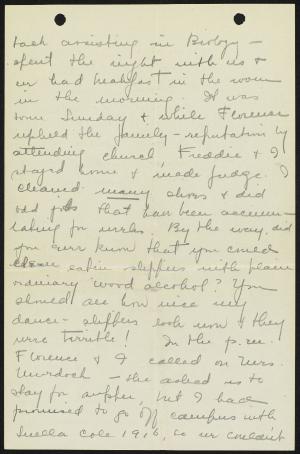 back assisting in Biology —
spent the night with us &
we had breakfast in the room
in the morning. It was
some Sunday & while Florence
upheld the family - reputation by
attending church, Freddie & I
stayed home & made fudge. I
cleaned many shoes & did
odd jobs that have been accumu-
lating for weeks. By the way, did
you ever know that you could
clean satin slippers with plain
ordinary wood alcohol? You
should see how nice my
dance-slippers look now & they
were terrible! In the p.m.
Florence & I called on Mrs.
Murdoch - she asked us to
stay for supper, but I had
promised to go off campus with
Luella Cole 1916, so we couldn't